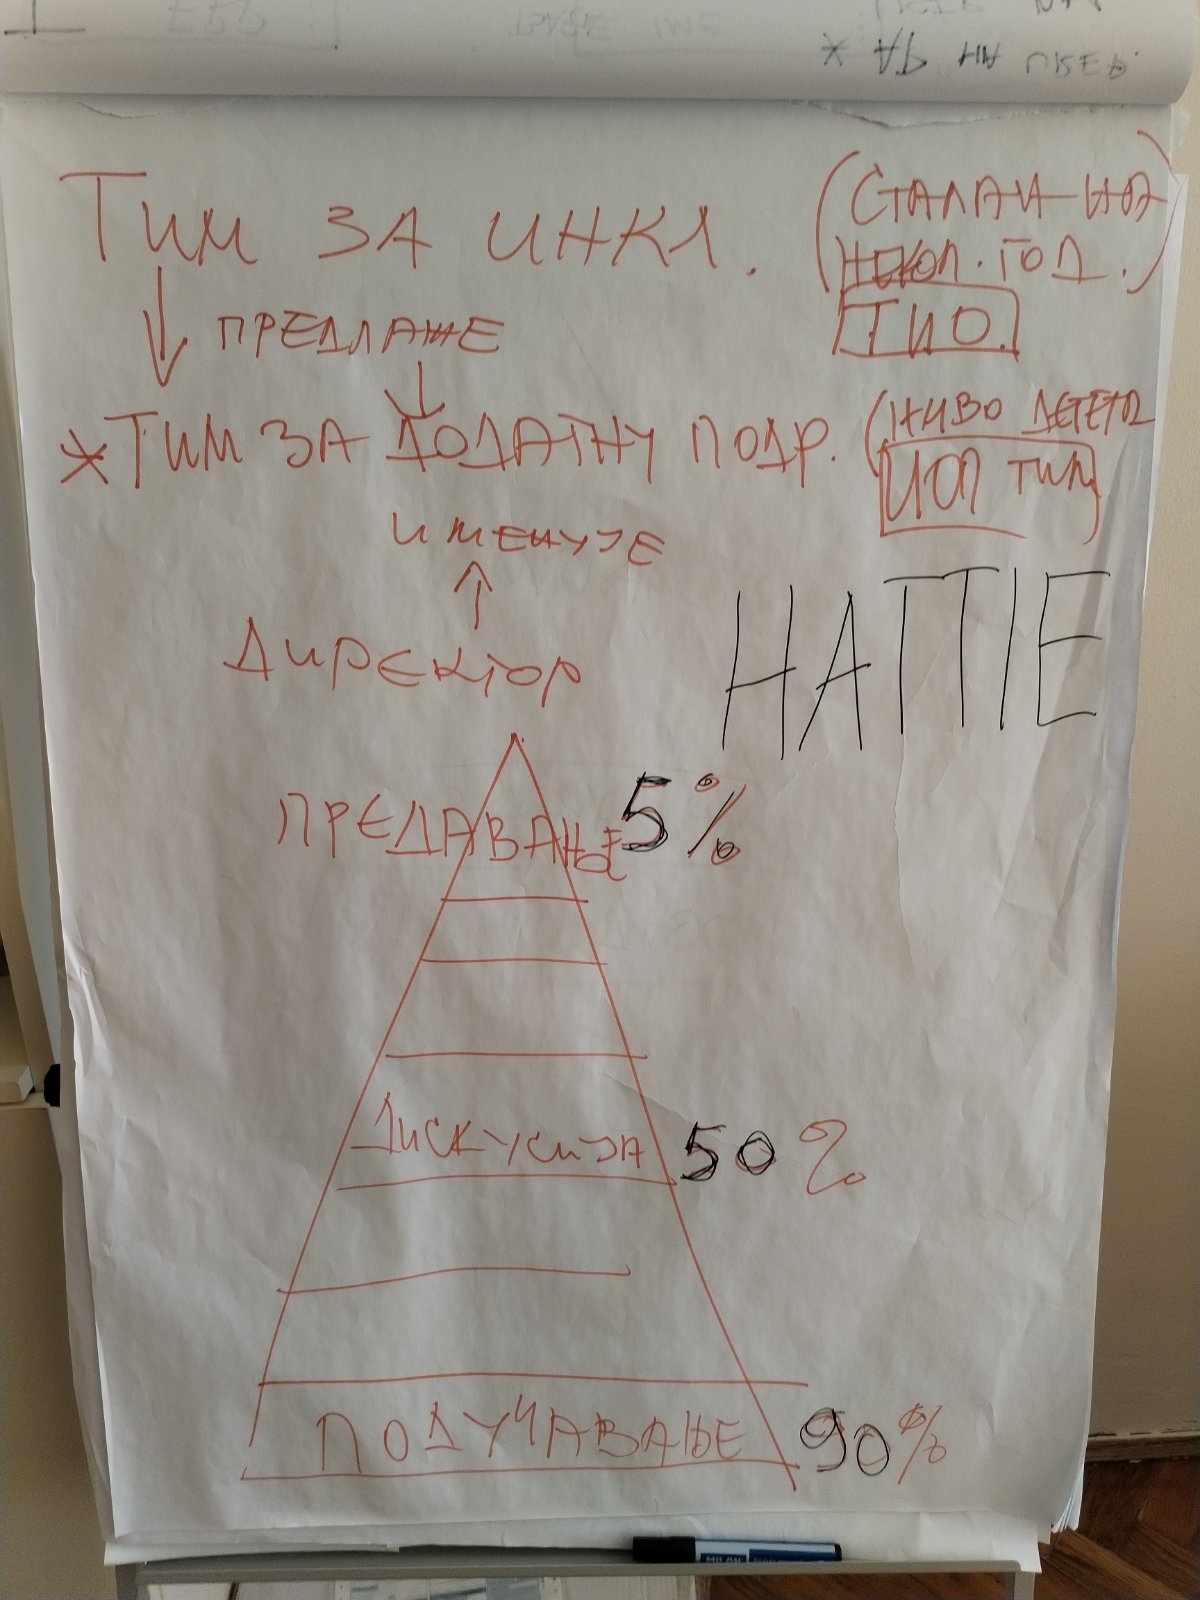 * ДР НА ПРЕД.
ТИМ ЗА ИНКЛ.
(СТАЛАН НА
НЕКОЛ. ГОД.)
ТИО.
ПРЕДЛАЖЕ
*ТИМ ЗА ДОДАТНУ ПОДР.
(НИВО ДЕТЕТА
ИОП ТИМ)
ИМЕНУЈЕ
ДИРЕКТОР
HATTIE
ПРЕДАВАЊЕ 5%
ДИСКУСИЈА 50%
ПОДУЧАВАЊЕ 90%
MILAN